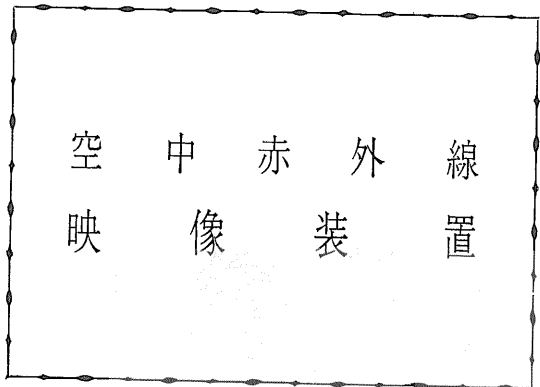 空中赤外線
映像装置